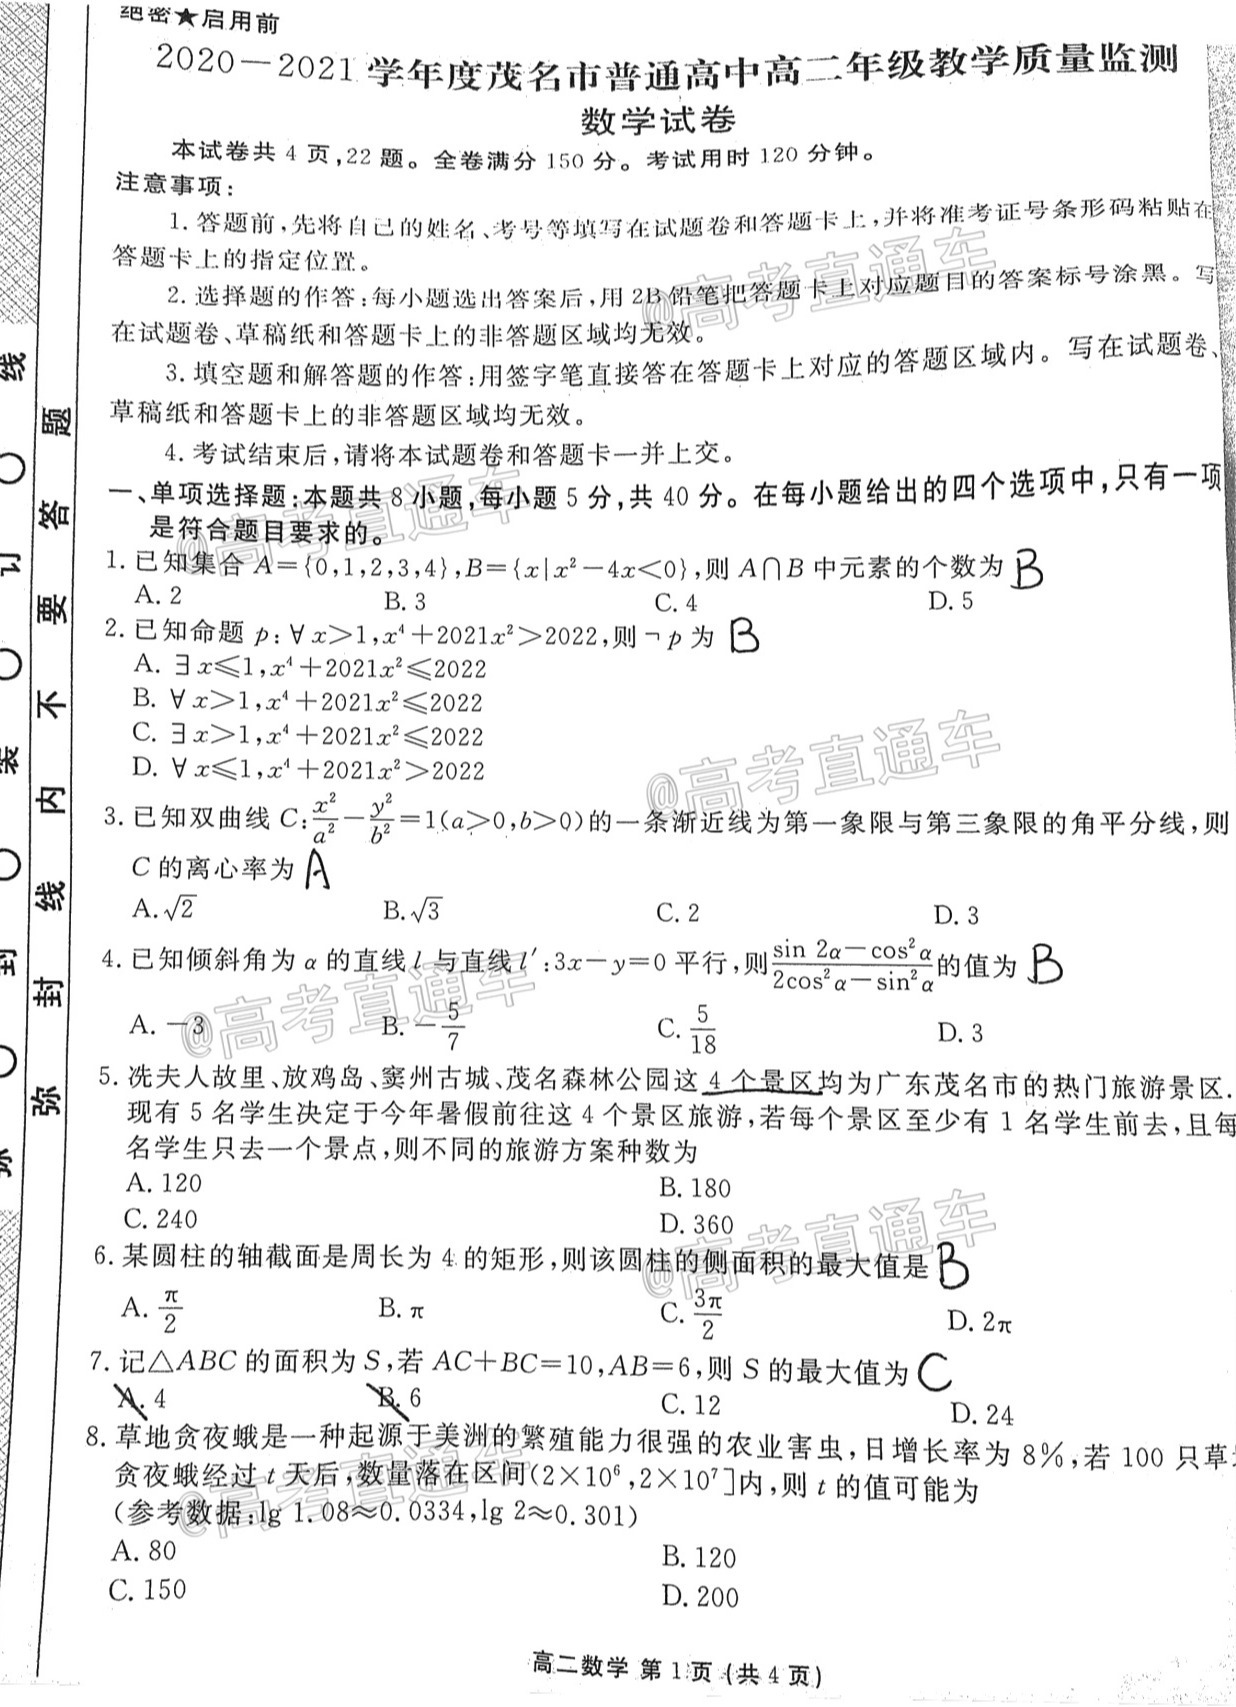 绝密★启用前
2020—2021学年度茂名市普通高中高二年级教学质量监测
数学试卷
本试卷共4页,22题。全卷满分150分。考试用时120分钟。
注意事项:
1.答题前,先将自己的姓名、考号等填写在试题卷和答题卡上,并将准考证号条形码粘贴在
答题卡上的指定位置。
2.选择题的作答:每小题选出答案后,用2B铅笔把答题卡上对应题目的答案标号涂黑。写
在试题卷、草稿纸和答题卡上的非答题区域均无效。
3.填空题和解答题的作答:用签字笔直接答在答题卡上对应的答题区域内。写在试题卷、
草稿纸和答题卡上的非答题区域均无效。
4.考试结束后,请将本试题卷和答题卡一并上交。
一、单项选择题:本题共8小题,每小题5分,共40分。在每小题给出的四个选项中,只有一项
是符合题目要求的。
1.已知集合A={0,1,2,3,4},B={x|x²-4x<0},则A∩B中元素的个数为 B
A.2 B.3 C.4 D.5
2.已知命题p:∀x>1,x⁴+2021x²>2022,则¬p为 B
A.∃x≤1,x⁴+2021x²≤2022
B.∀x>1,x⁴+2021x²≤2022
C.∃x>1,x⁴+2021x²≤2022
D.∀x≤1,x⁴+2021x²>2022
3.已知双曲线C:x²/a²-y²/b²=1(a>0,b>0)的一条渐近线为第一象限与第三象限的角平分线,则
C的离心率为 A
A.√2 B.√3 C.2 D.3
4.已知倾斜角为α的直线l与直线l′:3x-y=0平行,则(sin 2α-cos²α)/(2cos²α-sin²α)的值为 B
A.-3 B.-5/7 C.5/18 D.3
5.冼夫人故里、放鸡岛、窦州古城、茂名森林公园这4个景区均为广东茂名市的热门旅游景区.
现有5名学生决定于今年暑假前往这4个景区旅游,若每个景区至少有1名学生前去,且每
名学生只去一个景点,则不同的旅游方案种数为
A.120 B.180
C.240 D.360
6.某圆柱的轴截面是周长为4的矩形,则该圆柱的侧面积的最大值是 B
A.π/2 B.π C.3π/2 D.2π
7.记△ABC的面积为S,若AC+BC=10,AB=6,则S的最大值为 C
A.4 B.6 C.12 D.24
8.草地贪夜蛾是一种起源于美洲的繁殖能力很强的农业害虫,日增长率为8%,若100只草
贪夜蛾经过t天后,数量落在区间(2×10⁶,2×10⁷]内,则t的值可能为
(参考数据:lg 1.08≈0.0334,lg 2≈0.301)
A.80 B.120
C.150 D.200
高二数学 第1页(共4页)
弥封线内不要答题
订 装 封
线
@高考直通车
@高考直通车
@高考直通车
@高考直通车
@高考直通车
@高考直通车